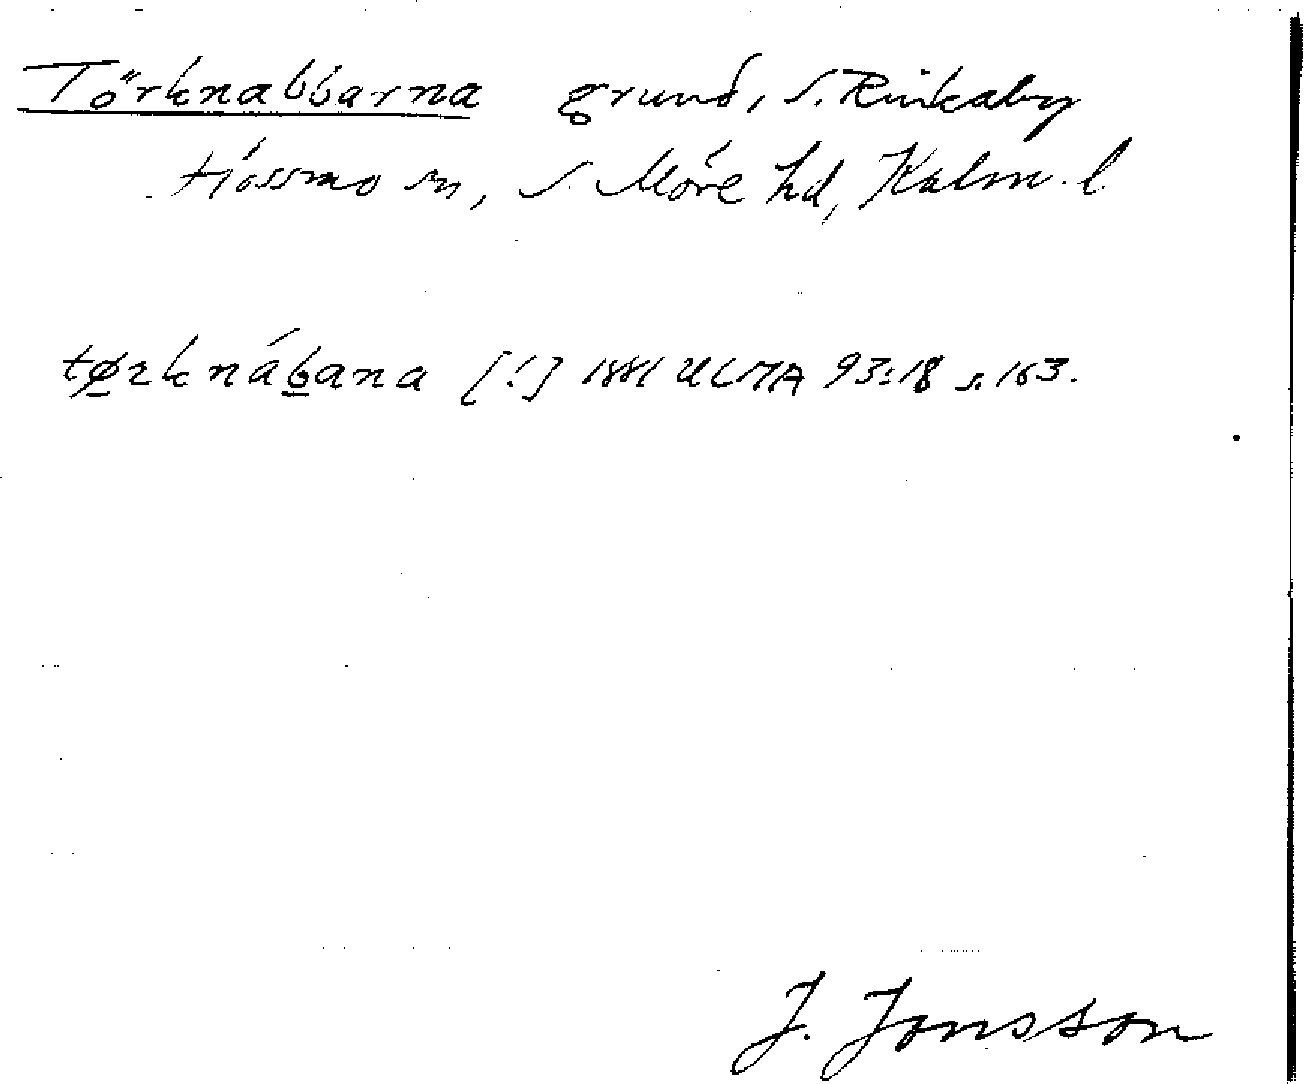 Törknabbarna grund, S. Rinkaby
Hossmo sn, S. Möre hd, Kalm. l.
tørknábana [!] 1881 ULMA 93:18 s. 163.
J. Jonsson